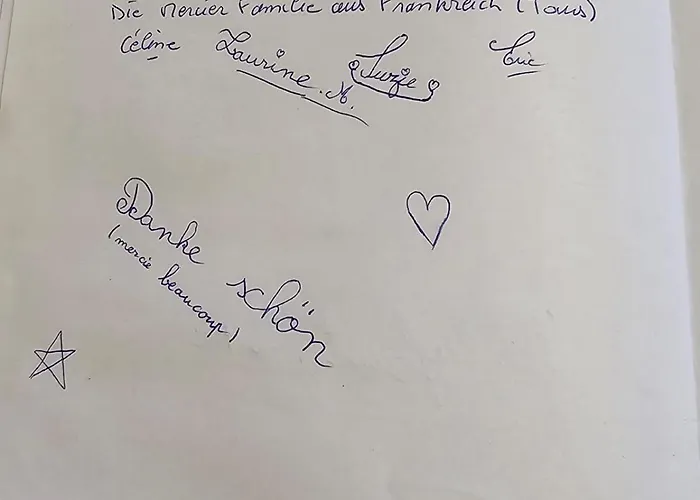 Die Mercier Familie aus Frankreich (Tours)
Céline Laurine.M. Suzie Eric
Danke schön
(mercie beaucoup)